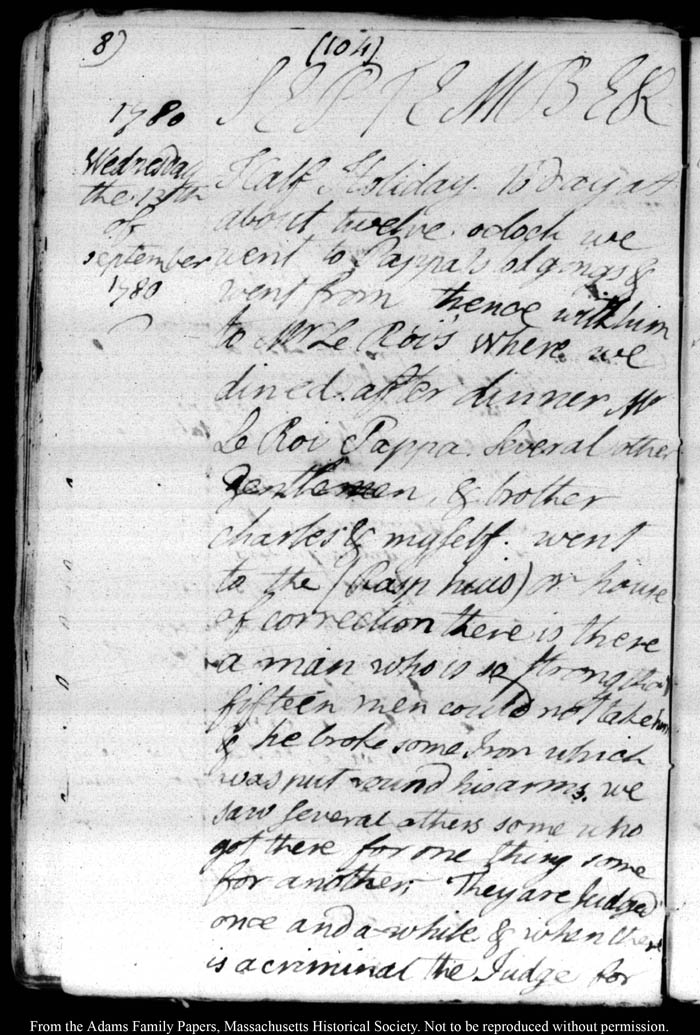 8)
(104)
SEPTEMBER
1780
Wednesday
the 13th
of
September
1780
Half Holiday. to day at
about twelve. oclock we
went to Pappa's
went from thence with him
to Mr Le Roi's where we
dined. after dinner Mr
Le Roi Pappa. Several other
Gentlemen, & brother
charles & myself. went
to the (Rasp huis) or house
of correction there is there
a man who is so strong that
fifteen men could not take him
& he broke some Iron which
was put round his arms. we
saw several others some who
got there for one thing some
for another. They are Judged
once and a while & when there
is a criminal the Judge for
From the Adams Family Papers, Massachusetts Historical Society. Not to be reproduced without permission.